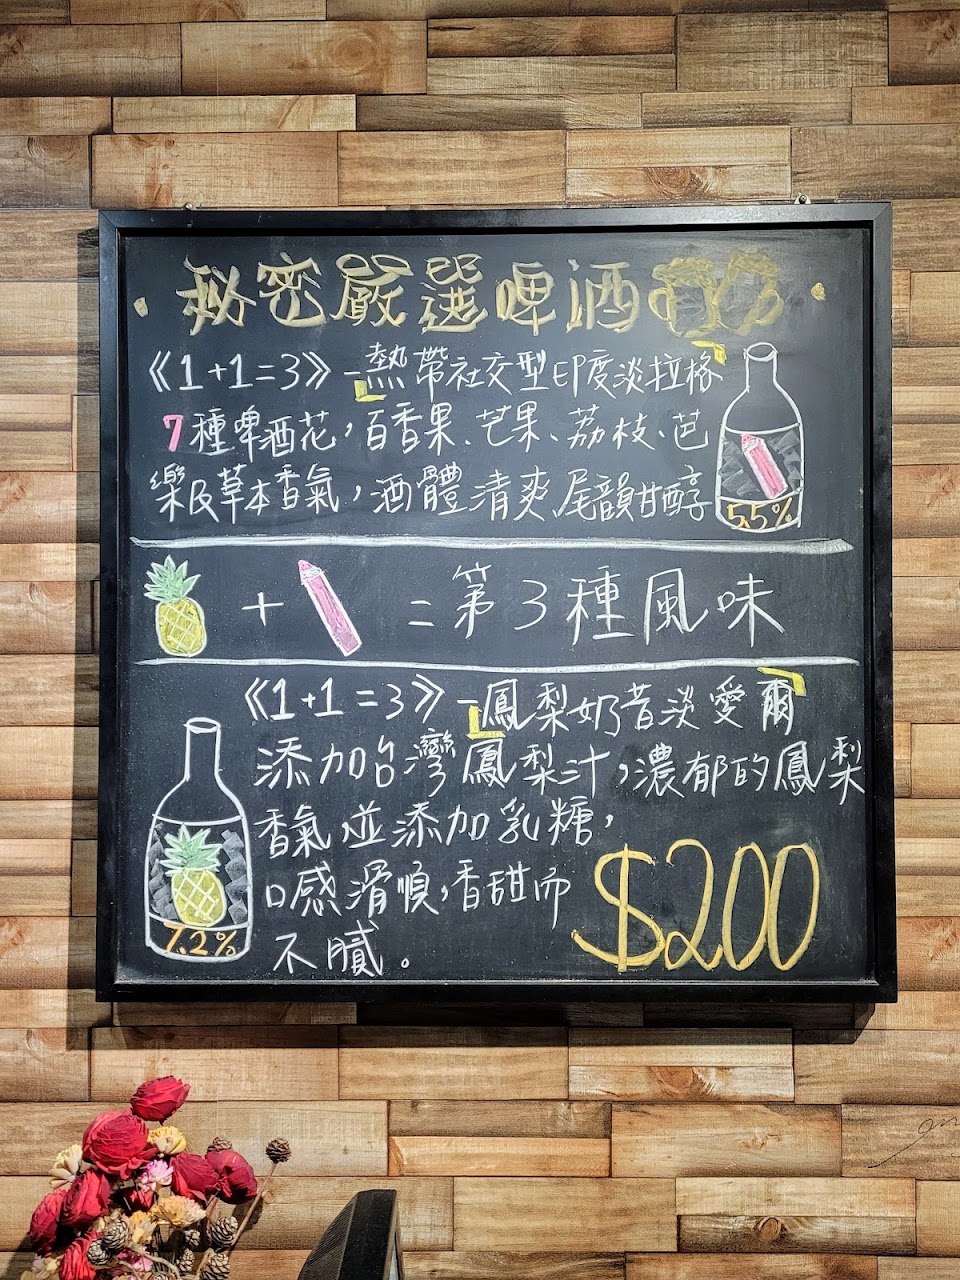 秘密嚴選啤酒
《1+1=3》-熱帶社交型印度淡拉格
7種啤酒花，百香果、芒果、荔枝、芭
樂及草本香氣，酒體清爽尾韻甘醇
5.5%
+ = 第3種風味
《1+1=3》-鳳梨奶昔淡愛爾
添加台灣鳳梨汁，濃郁的鳳梨
香氣並添加乳糖，
口感滑順，香甜而
不膩。
7.2%
$200